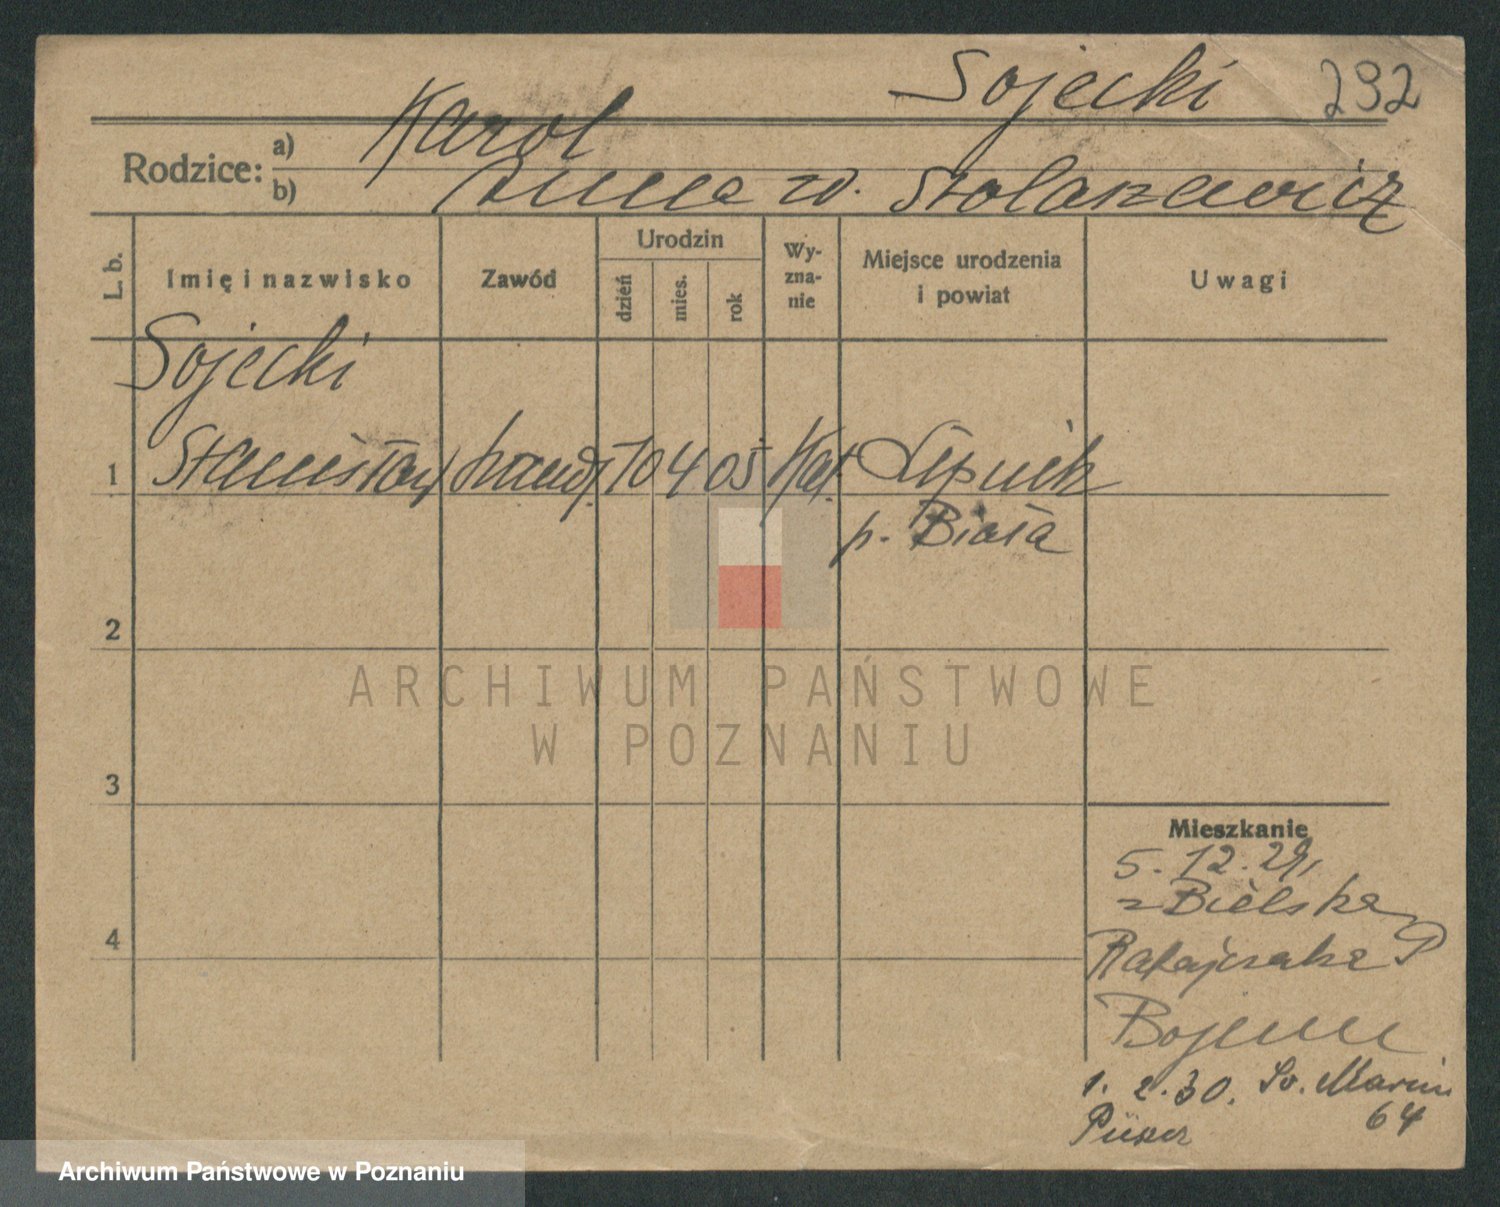 Sojecki 292
Rodzice:
a) Karol
b) Anna w. Stolarzewicz
L. b.
Imię i nazwisko
Zawód
Urodzin
dzień
mies.
rok
Wy-
zna-
nie
Miejsce urodzenia
i powiat
Uwagi
Sojecki
1 Stanisław 10 4 05 Kat. Lipnik
p. Biała
2
3
4
Mieszkanie
5. 12. 29
z Bielska
Ratajczaka
1. 2. 30. Św. Marcin
64
ARCHIWUM PAŃSTWOWE
W POZNANIU
Archiwum Państwowe w Poznaniu